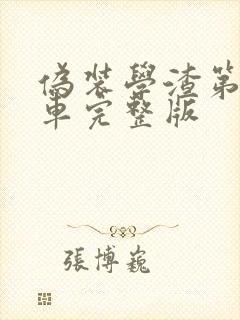 偽裝學渣第
車完整版
張博巍